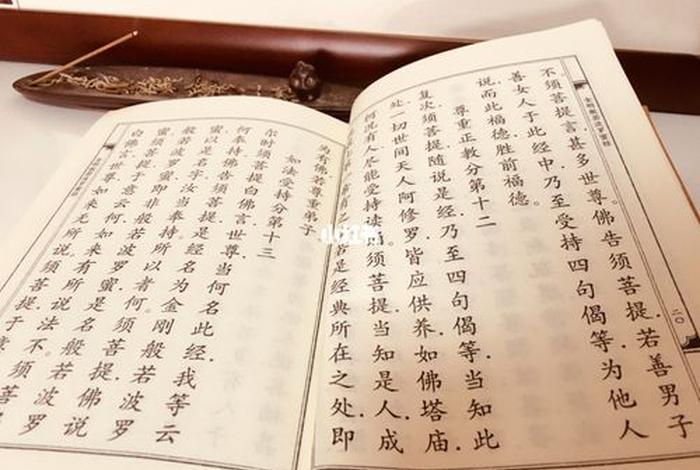 金刚般若波罗蜜经
二〇
不.须菩提言.甚多世尊.佛告须菩提.若善男子
善女人于此经中.乃至受持四句偈等.为他人
说.而此福德胜前福德.
尊重正教分第十二
复次须菩提.随说是经.乃至四句偈等.当知此
处.一切世间天人阿修罗.皆应供养.如佛塔庙.
何况有人尽能受持读诵.须菩提.当知是人.成
有之 若是经典所在之处.即
为有佛若尊重弟子
如法受持分第十三
尔时须菩提白佛言.世尊.当何名此经.我等云
何奉持.佛告须菩提.是经名为金刚般若波罗
蜜.以是名字.汝当奉持.所以者何.须菩提.佛说
般若波罗蜜.即非般若波罗蜜.是名般若波罗
蜜.须菩提.于意云何.如来有所说法不.须菩
白佛言.世尊.如来无所说.须菩提.于意